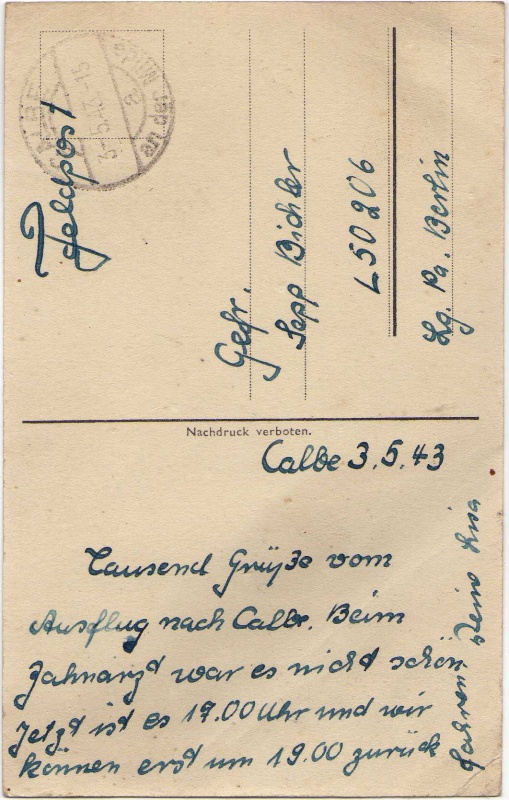 Feldpost
CALBE
3.5.43.-15
Gefr.
Sepp Bichler
L 50206
Lg. Pa. Berlin
Nachdruck verboten.
Calbe 3.5.43
Tausend Grüße vom
Ausflug nach Calbe. Beim
Zahnarzt war es nicht schön
Jetzt ist es 17.00 Uhr und wir
können erst um 19.00 zurück
fahren. Deine Lisa